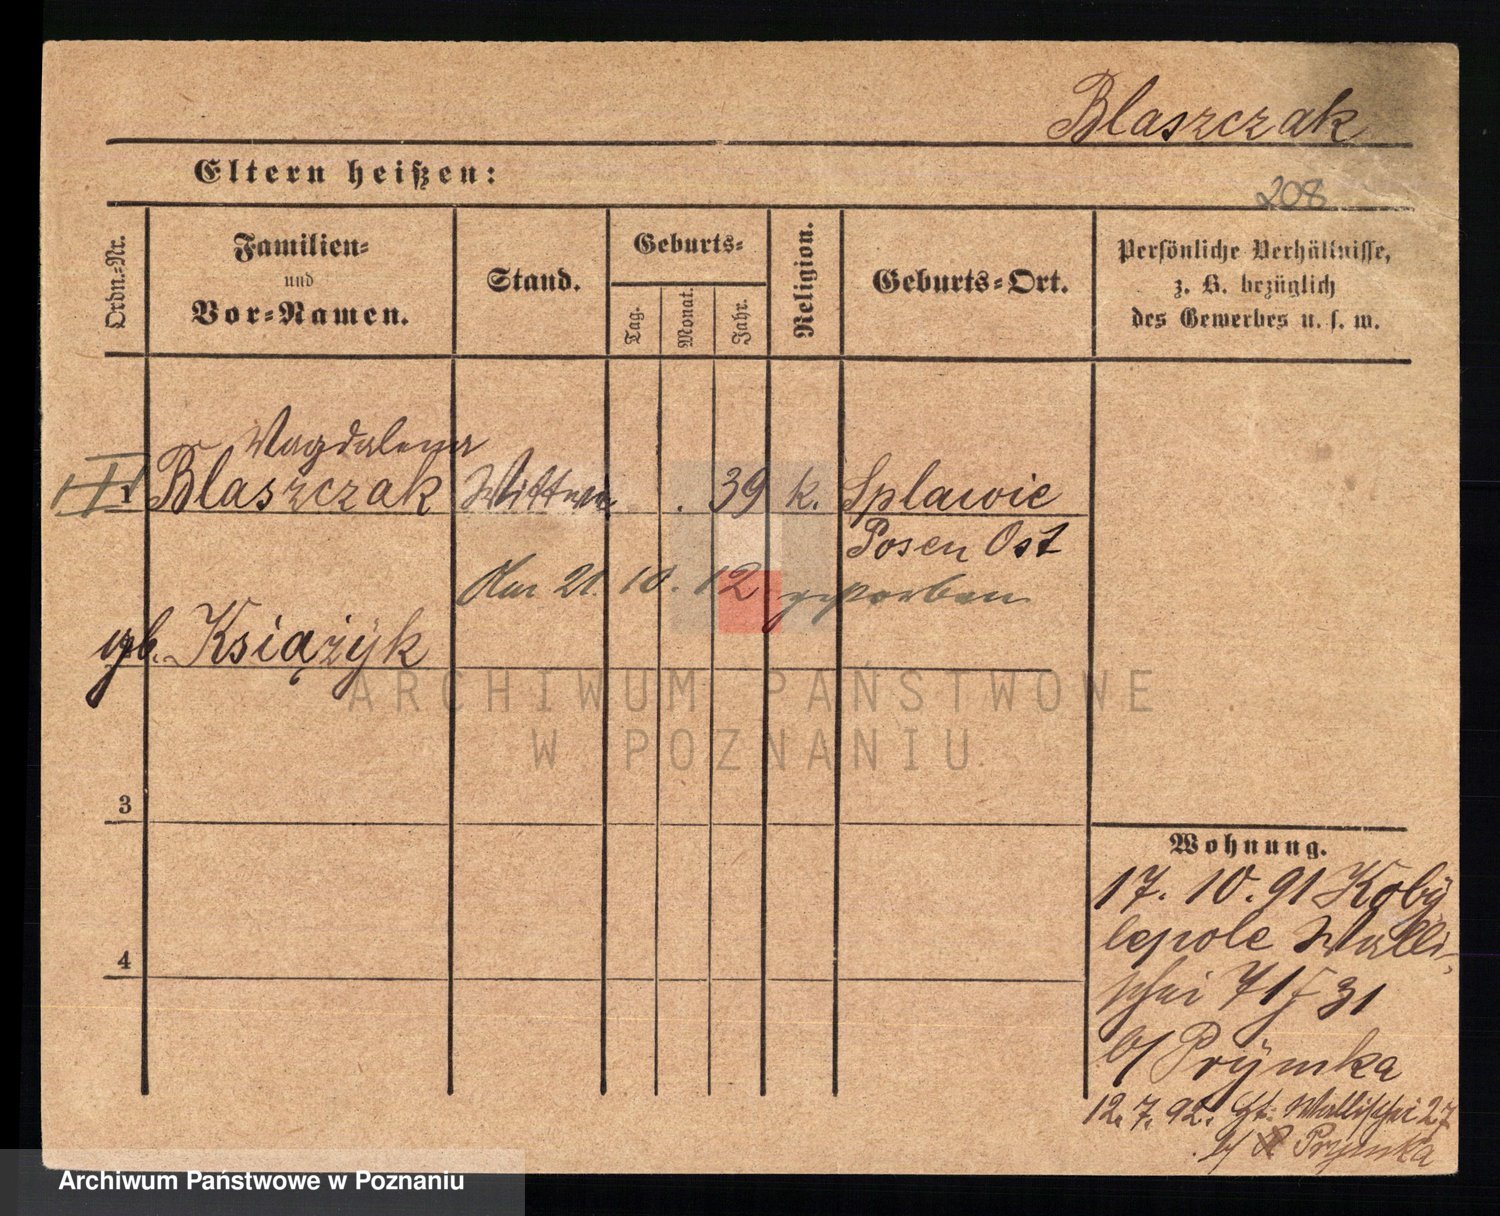 Blaszczak
Eltern heißen:
208
Ordn.-Nr.
Familien-
und
Vor-Namen.
Stand.
Geburts-
Tag.
Monat.
Jahr.
Religion.
Geburts-Ort.
Persönliche Verhältnisse,
z. B. bezüglich
des Gewerbes u. s. w.
Magdalena
1 Blaszczak 39 k. Splawie
Posen Ost
21. 10. 12 gestorben
gb. Książyk
ARCHIWUM PAŃSTWOWE
W POZNANIU
3
Wohnung.
17. 10. 91 Koby
lepole Walli-
schei 71
b/ Prymka
4
12. 7. 92. Wallischei 27
b/ Prymka
Archiwum Państwowe w Poznaniu